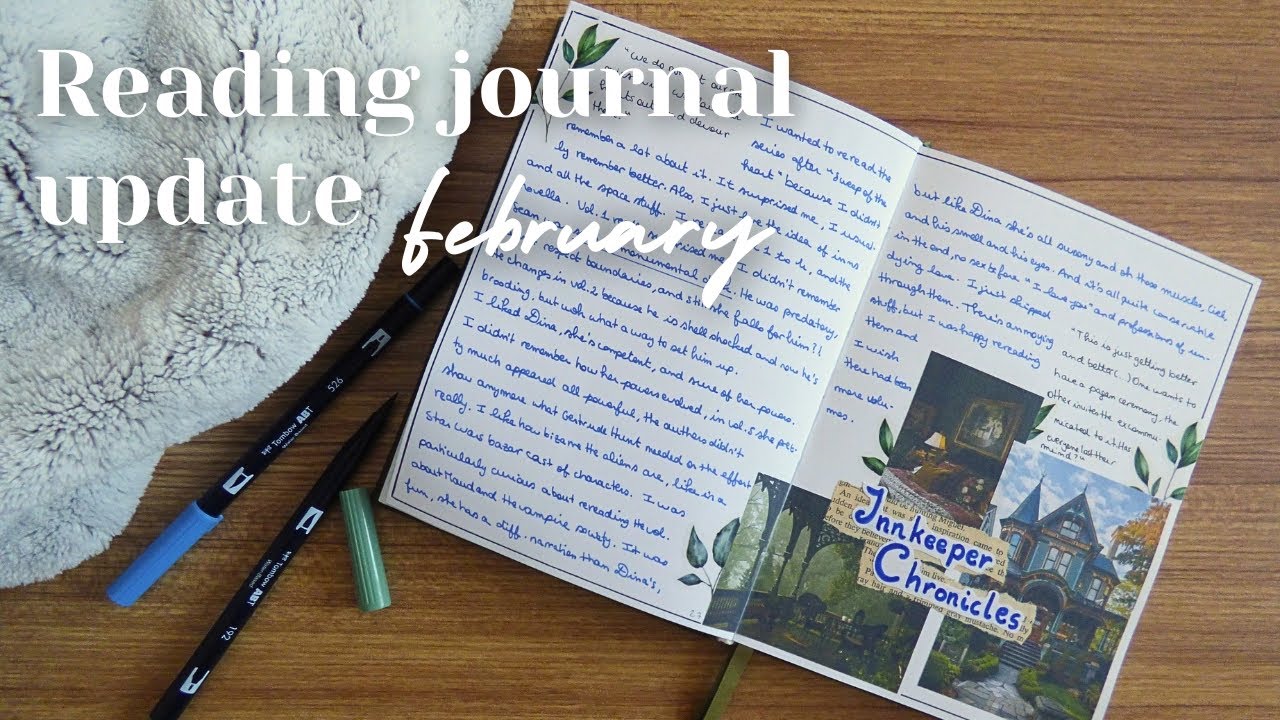 Reading journal
update
february
"We do
devour
them."
I wanted to reread the
series after "Sweep of the
heart" because I didn't
remember a lot about it. It surprised me, I usual-
ly remember better. Also, I just love the idea of inns
and all the space stuff.
novella. Vol. 1 surprised me, I didn't remember
Sean monumental He was predatory,
respect boundaries, and still she falls for him? (
He changes in vol. 2 because he is shell shocked and now he's
brooding, but wish what a way to set him up.
I liked Dina, she's competent, and sure of her powers.
I didn't remember how her powers evolved, in vol. 5 she pret-
ty much appeared all powerful, the authors didn't
show anymore what Gertrude Hunt needed or the effort
really. I like how bizarre the aliens are, like in a
star wars bazar cast of characters. I was
particularly curious about rereading the vol.
about Maud and the vampire society. It was
fun, she has a diff. narration than Dina's,
21
but like Dina she's all swoony and oh those muscles,
and his smell and his eyes. And it's all quite conservative
in the end, no sex before "I love you" and professions of un-
dying love. I just skipped
through them. There's annoying
stuff, but I was happy rereading
them and
I wish
there had been
more volu-
mes.
"This is just getting better
and better (...) One wants to
have a pagan ceremony, the
other invites the excommu-
nicated to it. Has
everyone lost their
mind?"
Innkeeper
Chronicles
An idea
it was inspiration came to
fore they believed
im live.
ray hair and a trimmed gray mustache. No
526
Tombow ABT
192
Tombow ABT